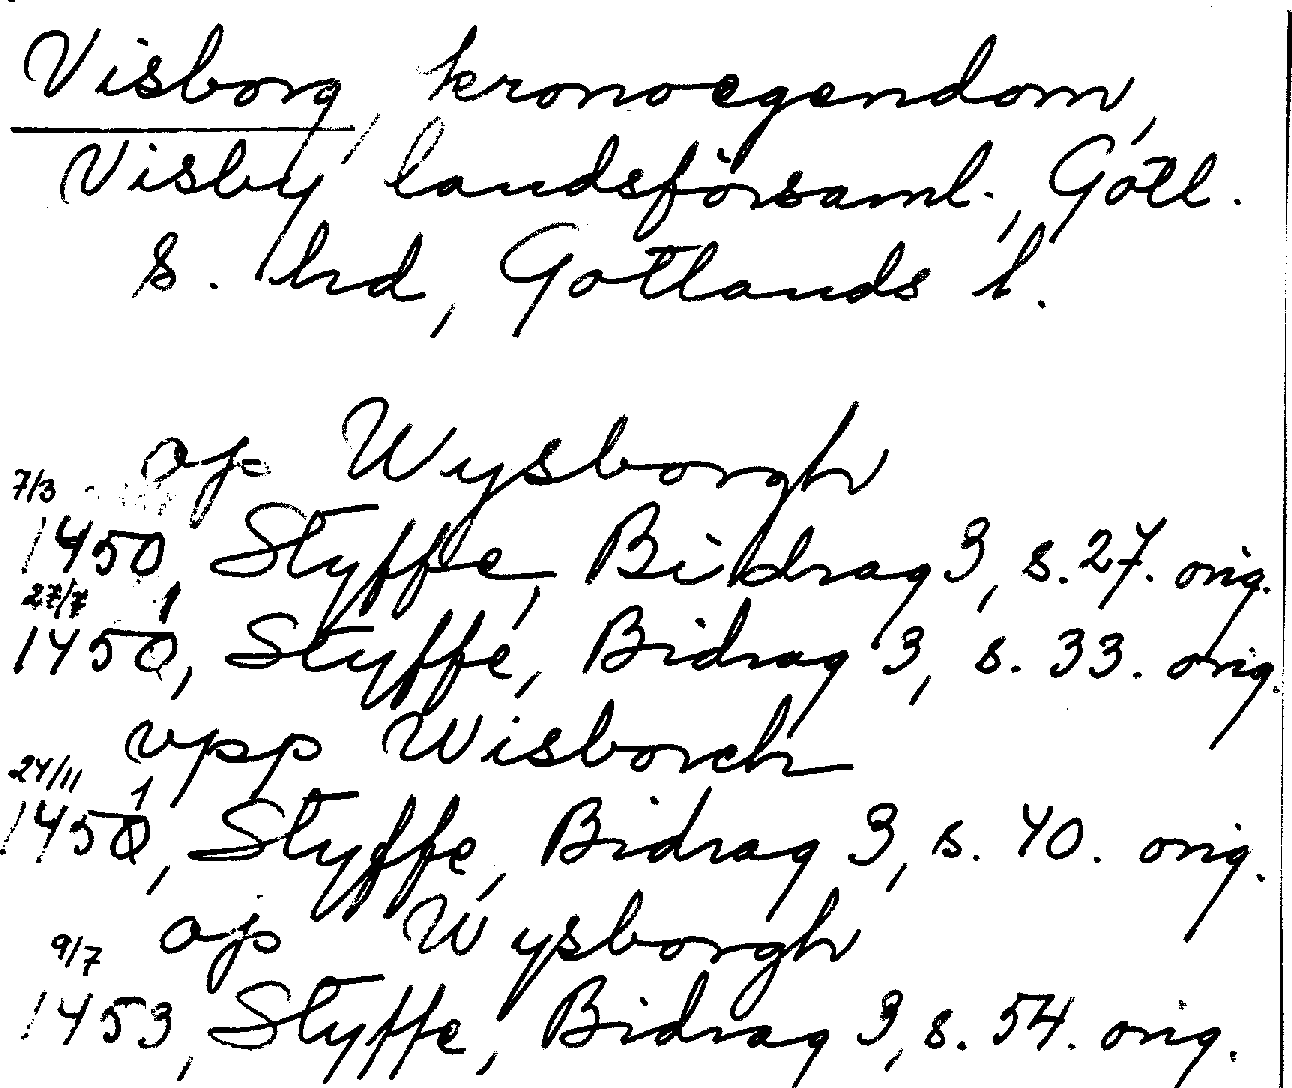 Visborg, kronoegendom,
Visby landsförsaml., Gotl.
s. hd, Gotlands l.
op Wysborgh
7/3
1450, Styffe, Bidrag 3, s. 27. orig.
27/7
1450, Styffe, Bidrag 3, s. 33. orig.
vpp Wisborch
24/11
1450, Styffe, Bidrag 3, s. 40. orig.
op Wysborgh
9/7
1453, Styffe, Bidrag 3, s. 54. orig.